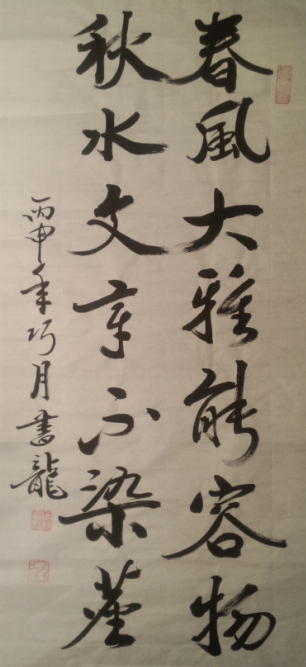 春風大雅能容物
秋水文章不染塵
丙申年巧月書龍